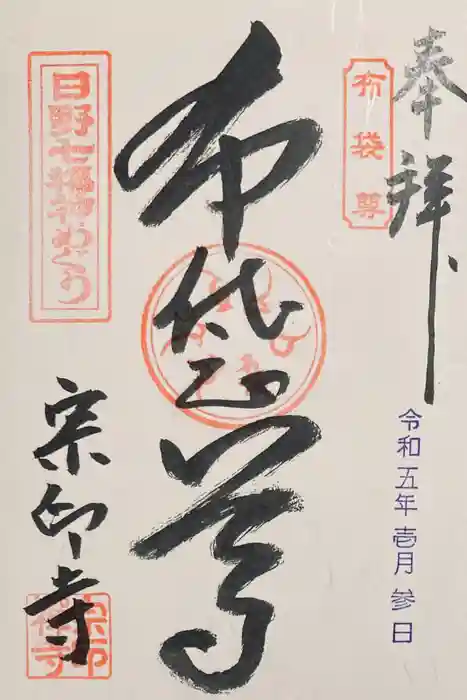 奉拝
布袋尊
令和五年壱月参日
布袋尊
日野七福神めぐり
宗印寺
宗印禅寺